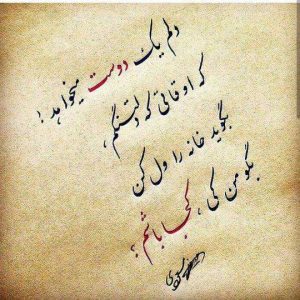 دلم یک دوست میخواهد!
که اوقاتی که دلتنگم،
بگوید خانه را ول کن
بگو من کی، کجا باشم؟